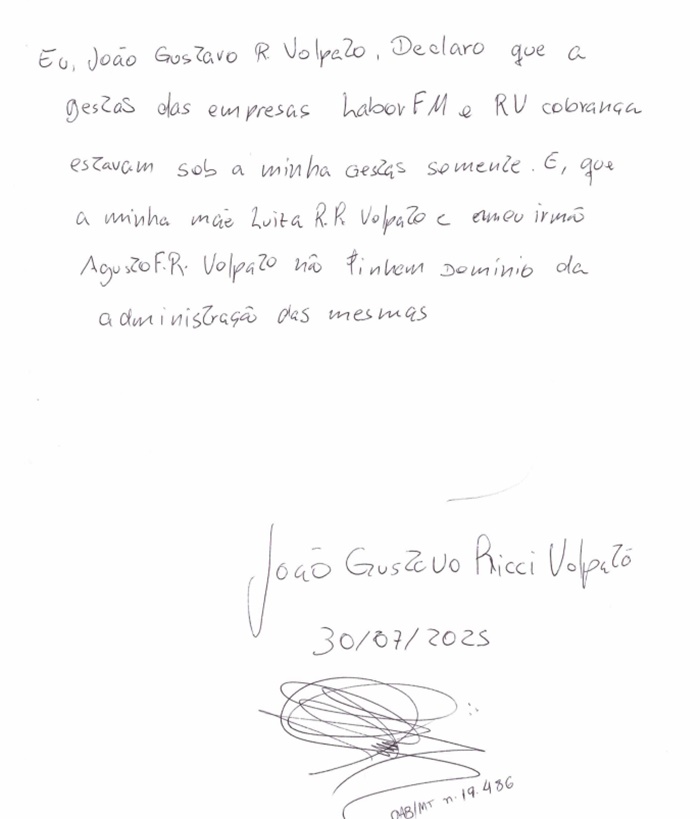 Eu, João Gustavo R Volpato, Declaro que a
gestas das empresas Labor FM e RV cobrança
estavam sob a minha Gestas somente. E, que
a minha mãe Luiza R.R. Volpato e o meu irmão
Agusto F.R. Volpato não tinhem Domínio da
administração das mesmas
João Gustavo Ricci Volpato
30/07/2025
OAB/MT n. 19.486